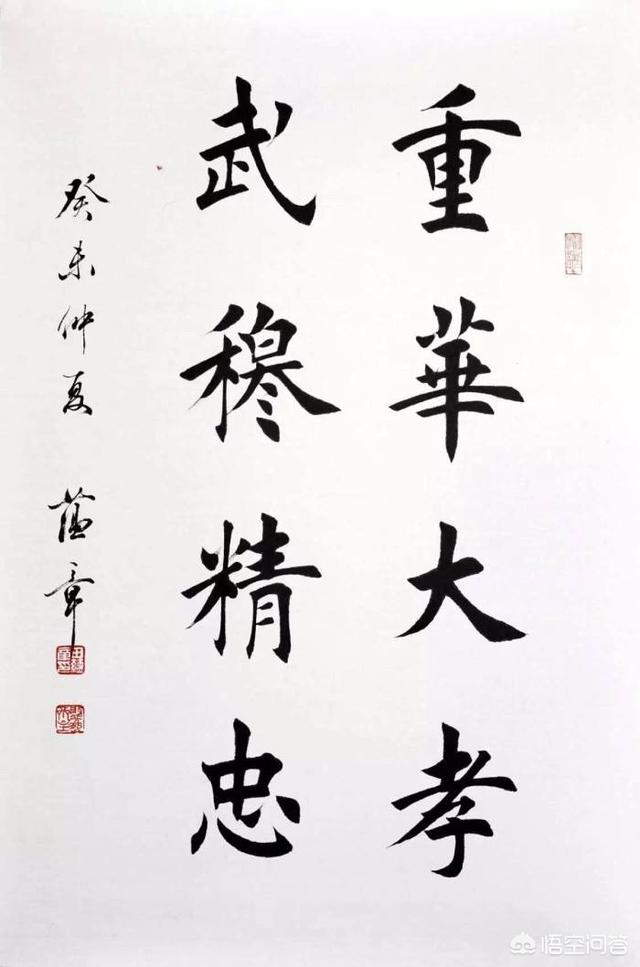 重華大孝
武穆精忠
癸未仲夏 蘊章
悟空问答